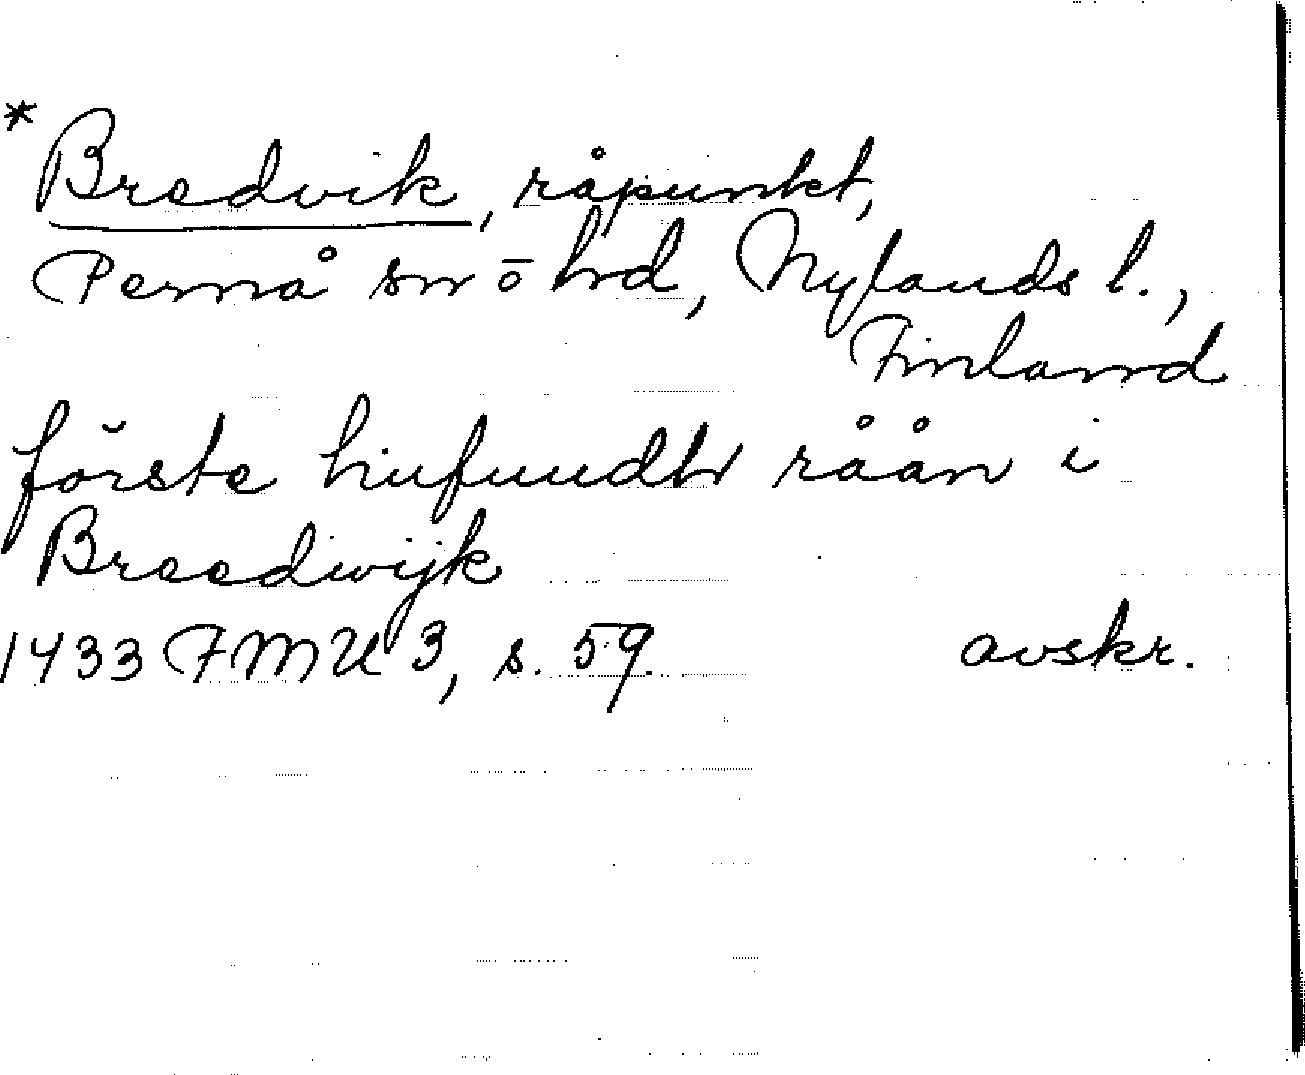 *Bredvik, råpunkt,
Pernå sn o hd, Nylands l.,
Finland
förste hufuudh råån i
Breedwijk
1433 FMU 3, s. 59. avskr.